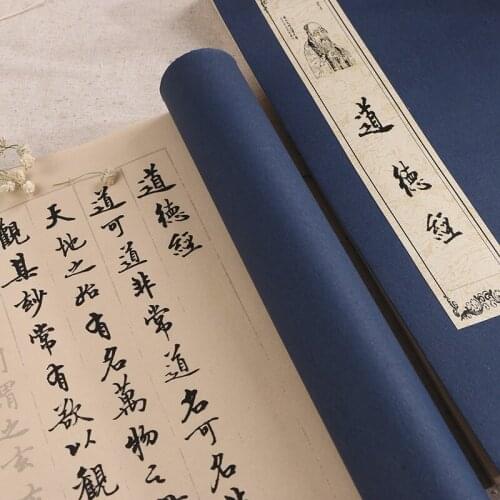 道德經
道德經
道可道非常道名可名
天地之始有名萬物之
觀其妙常有欲以觀
謂之玄